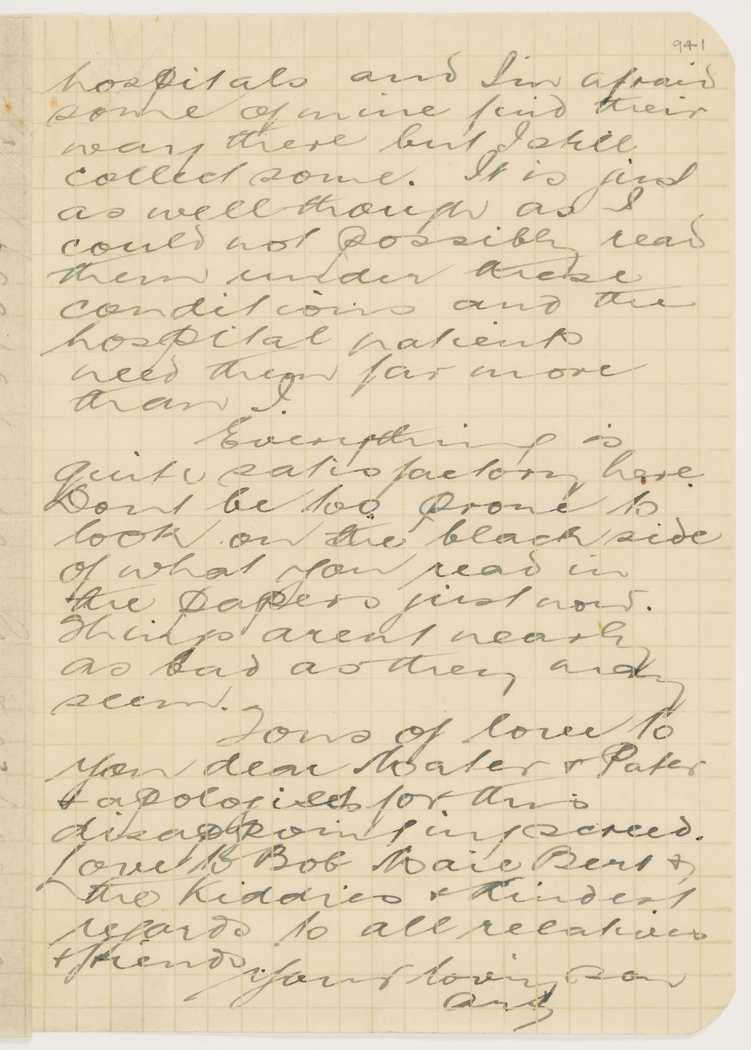 941
hospitals and I'm afraid
some of mine find their
way there but I still
collect some. It is just
as well though as I
could not possibly read
them under these
conditions and the
hospital patients
need them far more
than I.
Everything is
quite satisfactory here.
Dont be too prone to
look on the black side
of what you read in
the papers just now.
Things arent nearly
as bad as they may
seem.
Tons of love to
you dear Mater & Pater
& apologies for this
disappointing screed.
Love to Bob Maie Bert &
the Kiddies & Kindest
regards to all relatives
& friends.
Your loving son